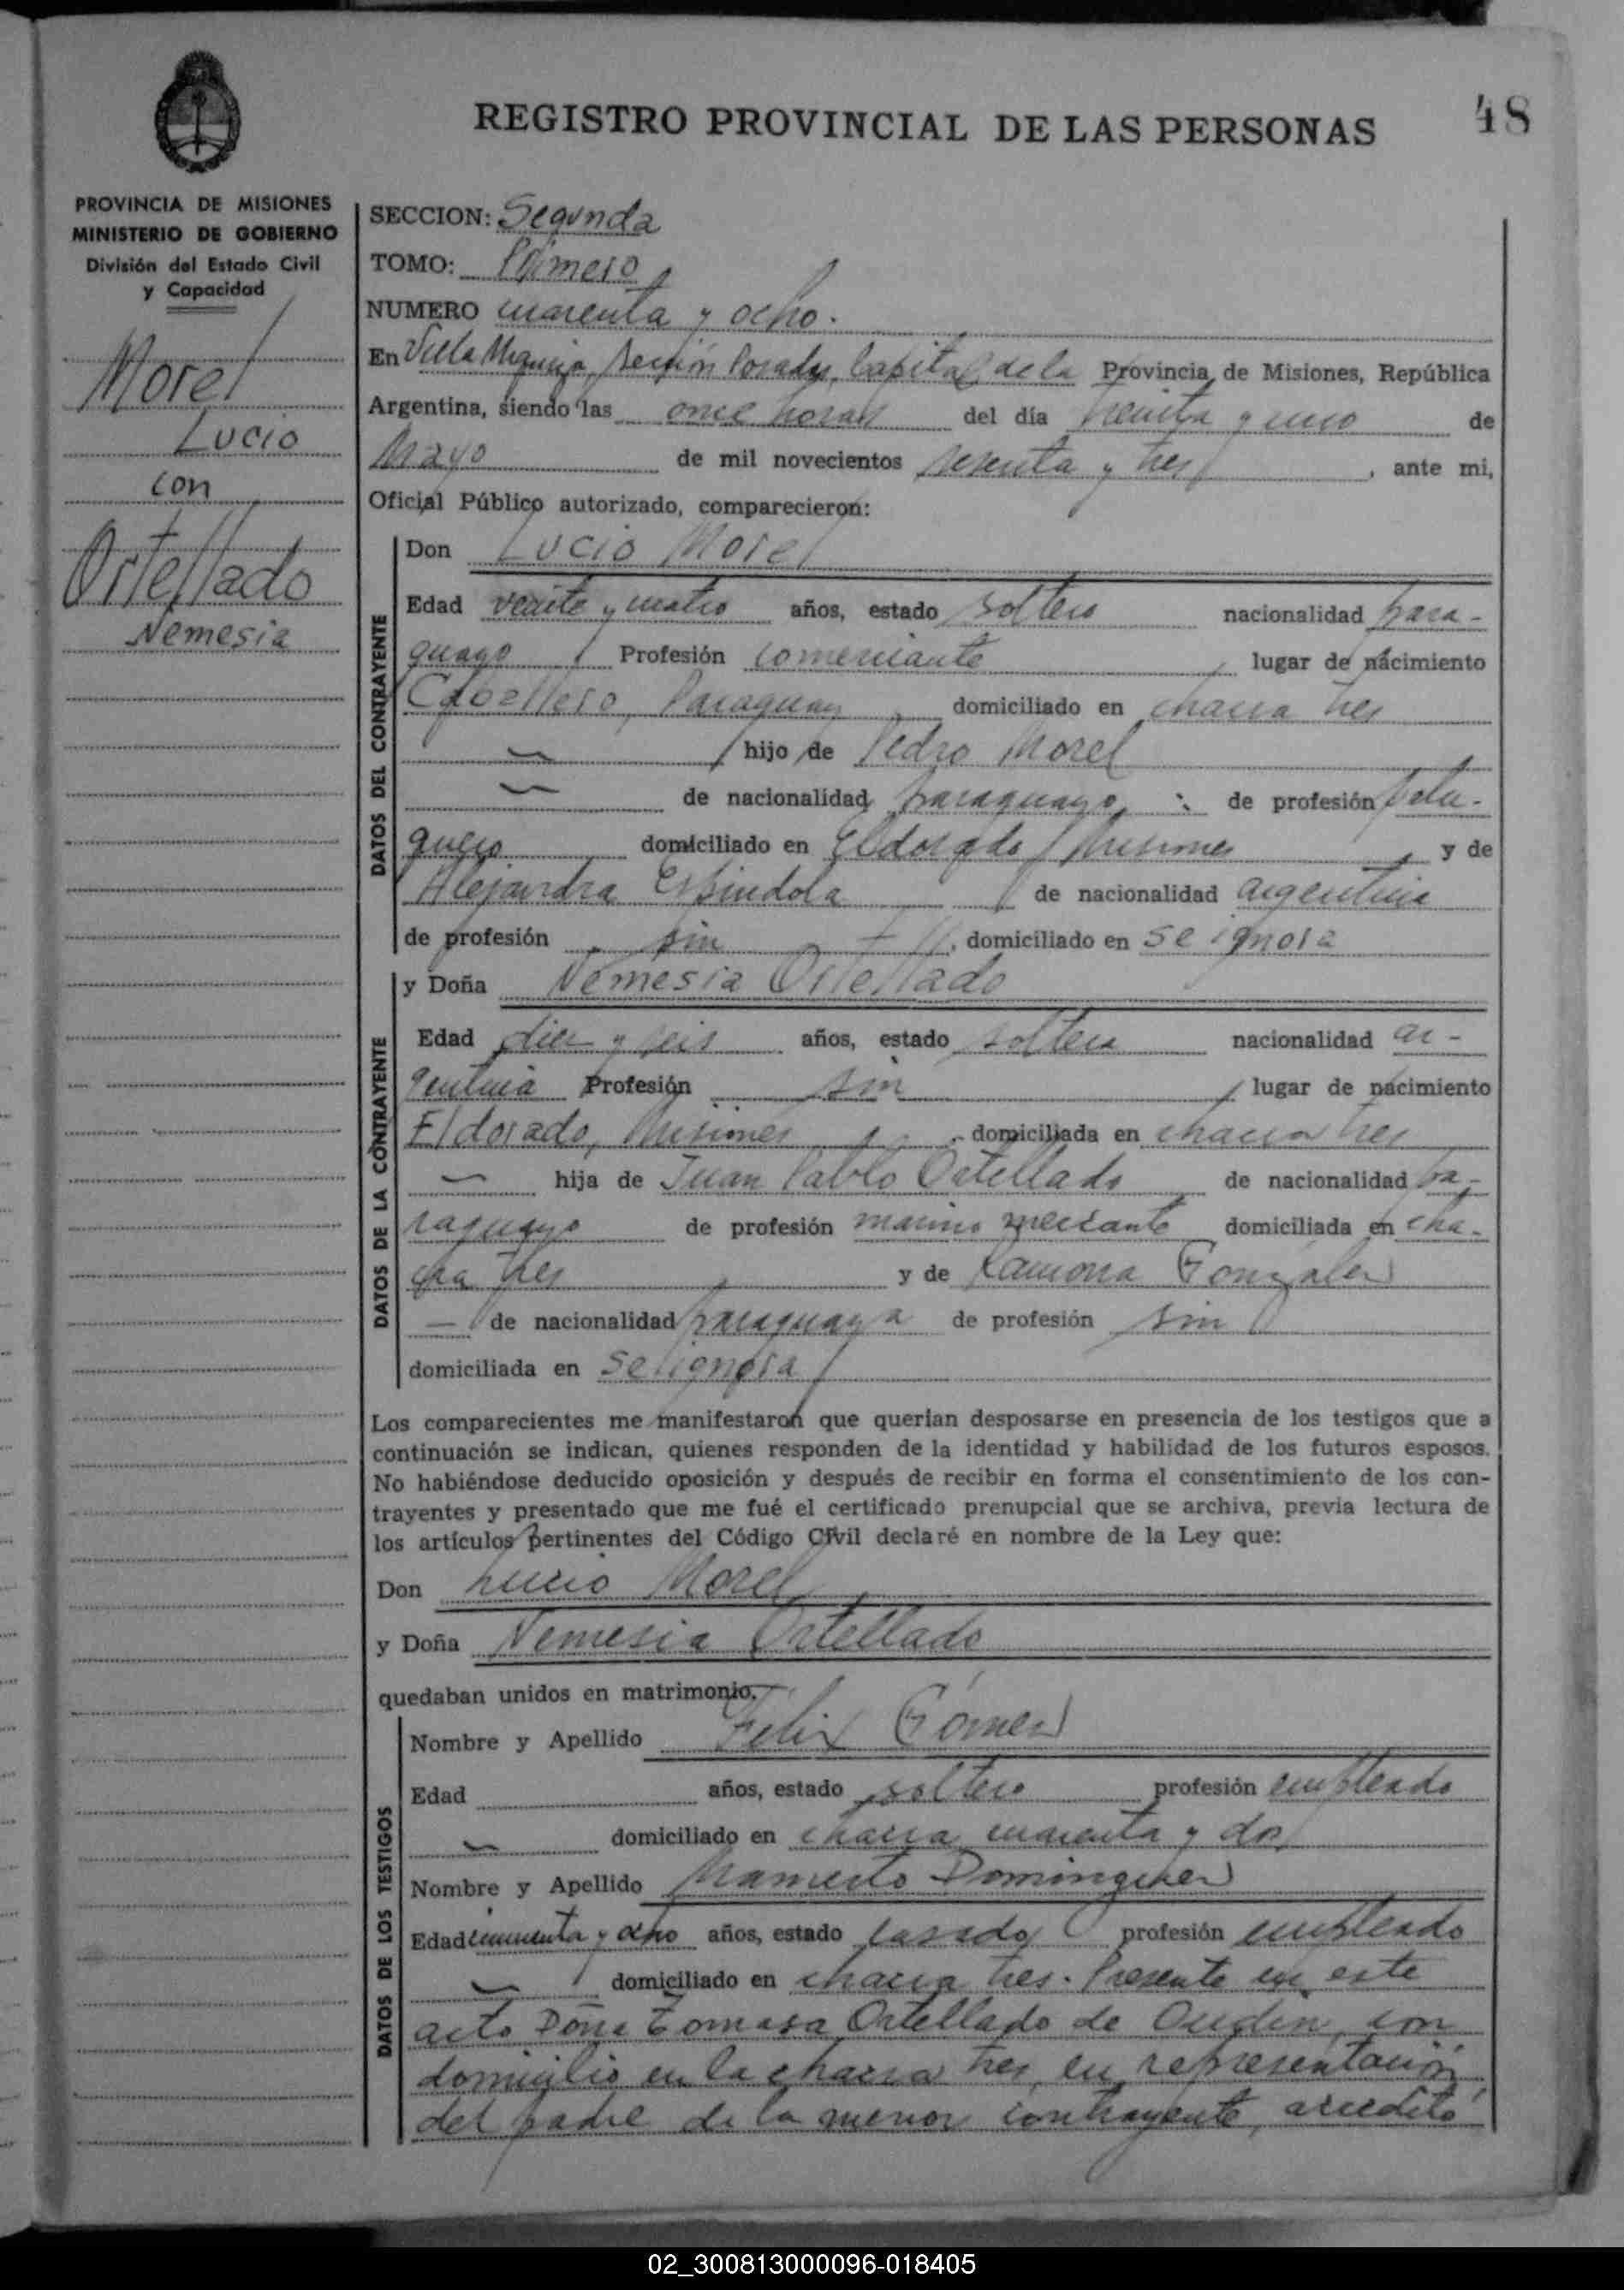 REGISTRO PROVINCIAL DE LAS PERSONAS
48
PROVINCIA DE MISIONES
MINISTERIO DE GOBIERNO
División del Estado Civil
y Capacidad
Morel
Lucio
con
Ortellado
Nemesia
SECCION: Segunda
TOMO: Primero
NUMERO cuarenta y ocho.
En Villa Urquiza, Sección Posadas, Capital de la Provincia de Misiones, República
Argentina, siendo las once horas del día treinta y uno de
Mayo de mil novecientos sesenta y tres, ante mi,
Oficial Público autorizado, comparecieron:
DATOS DEL CONTRAYENTE
Don Lucio Morel
Edad veinte y cuatro años, estado soltero nacionalidad para-
guayo Profesión comerciante, lugar de nacimiento
Caballero, Paraguay domiciliado en chacra tres
hijo de Pedro Morel
de nacionalidad paraguayo de profesión pelu-
quero domiciliado en Eldorado, Misiones, y de
Alejandra Espindola de nacionalidad argentina
de profesión sin, domiciliado en se ignora
DATOS DE LA CONTRAYENTE
y Doña Nemesia Ortellado
Edad diez y seis años, estado soltera nacionalidad ar-
gentina Profesión sin, lugar de nacimiento
Eldorado, Misiones, domiciliada en chacra tres
hija de Juan Pablo Ortellado de nacionalidad pa-
raguayo de profesión marino mercante domiciliada en cha-
cra tres y de Ramona González
— de nacionalidad paraguaya de profesión sin
domiciliada en se ignora
Los comparecientes me manifestaron que querían desposarse en presencia de los testigos que a
continuación se indican, quienes responden de la identidad y habilidad de los futuros esposos.
No habiéndose deducido oposición y después de recibir en forma el consentimiento de los con-
trayentes y presentado que me fué el certificado prenupcial que se archiva, previa lectura de
los artículos pertinentes del Código Civil declaré en nombre de la Ley que:
Don Lucio Morel
y Doña Nemesia Ortellado
quedaban unidos en matrimonio.
DATOS DE LOS TESTIGOS
Nombre y Apellido Felix Gómez
Edad años, estado soltero profesión empleado
domiciliado en chacra cuarenta y dos
Nombre y Apellido Mamerto Dominguez
Edad cincuenta y ocho años, estado casado profesión empleado
domiciliado en chacra tres. Presente en este
acto Doña Tomasa Ortellado de con
domicilio en la chacra tres, en representación
del padre de la menor contrayente, acreditó
02_300813000096-018405